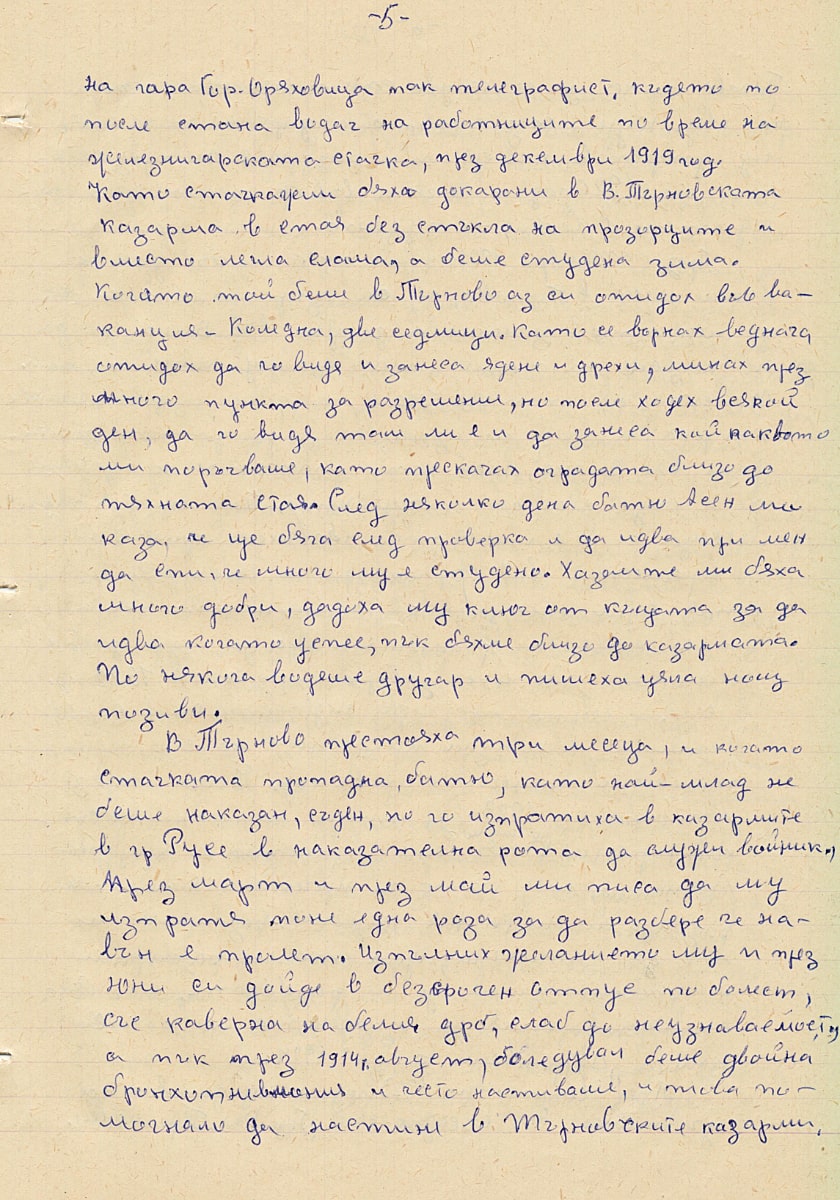 -5-
на гара Гор. Оряховица пак телеграфист, където по
после стана водач на работниците по време на
железничарската стачка, през декември 1919 год.
Като стачкуващи бяха докарани в В. Търновската
казарма в стая без стъкла на прозорците и
вместо легла слама, а беше студена зима.
Когато той беше в Търново аз си отидох във ва-
канция - Коледна, две седмици. Като се ворнах веднага
отидох да го видя и занеса ядене и дрехи, минах през
много пункта за разрешении, но после ходех всякой
ден, да го видя там ли е и да занеса кой каквото
ми поръчваше, като прескачах оградата близо до
тяхната стая. След няколко дена батю Асен ми
каза, че ще бяга след проверка и да идва при мен
да спи, че много му е студено. Хазяите ми бяха
много добри, дадоха му ключ от къщата за да
идва когато успее, пък бяхме близо до казармата.
По някога водеше другар и пишеха цяла нощ
позиви.
В Търново престояха три месеца, и когато
стачката пропадна, батю, като най-млад не
беше наказан, съден, но го изпратиха в казармите
в гр Русе в наказателна рота да служи войник,
През март и през май ми писа да му
изпратя поне една роза за да разбере че на-
вън е пролет. Изпълних желанието му и през
юни си дойде в безсрочен отпус по болест,
със каверна на белия дроб, слаб до неузнаваемост,
а пък през 1914 г. август, боледувал беше двойна
бронхопневмония и често настиваше, и това по-
могнало да настине в Търновските казарми.